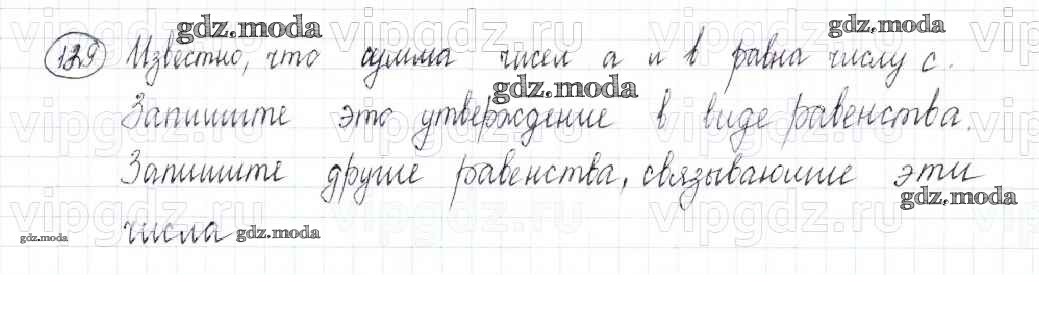 gdz.moda gdz.moda
129 Известно, что сумма чисел a и b равна числу c.
gdz.moda
Запишите это утверждение в виде равенства.
Запишите другие равенства, связывающие эти
gdz.moda
числа
gdz.moda gdz.moda
vipgdz.ru vipgdz.ru vipgdz.ru vip
vipgdz.ru vipgdz.ru vipgdz.ru vip
vipgdz.ru vipgdz.ru vipgdz.ru vip